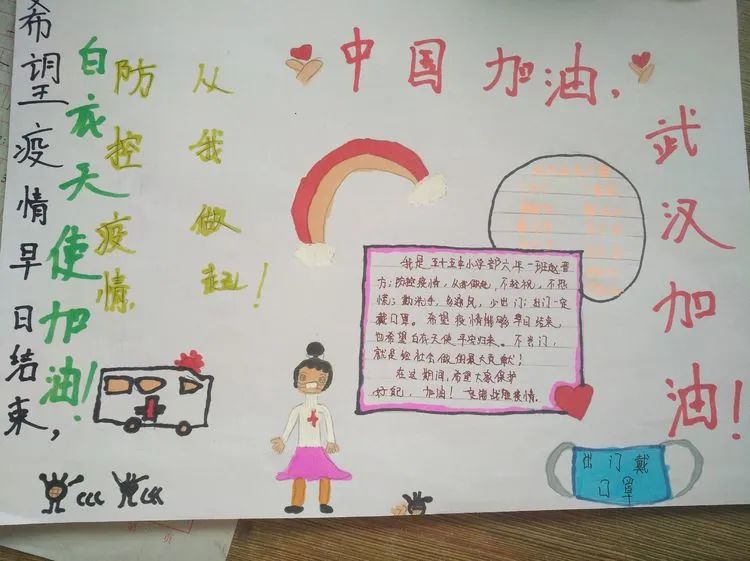 希望疫情早日结束,
白衣天使加油!
防控疫情,
从我做起!
中国加油,
武汉加油!
我是五十五中小学部六年一班赵晋
方:防控疫情,从我做起,不轻视,不恐
慌;勤洗手,多通风,少出门;出门一定
戴口罩。希望疫情能够早日结束,
也希望白衣天使平安归来。不出门,
就是给社会做的最大贡献!
在这期间,希望大家保护
好自己,加油!一定能战胜疫情.
出门戴
口罩